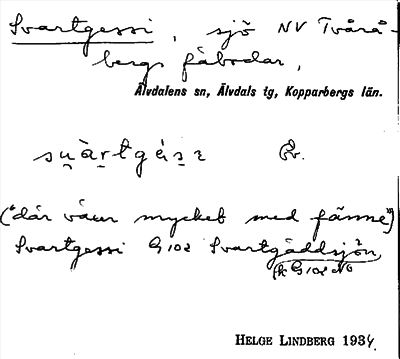 Svartgessi, sjö NV Tvårå-
bergs fäbodar,
Älvdalens sn, Älvdals tg, Kopparbergs län.
Öv.
("där växer mycket med fänne")
Svartgessi G102 Svartgäddsjön,
G102 NO
HELGE LINDBERG 1934.